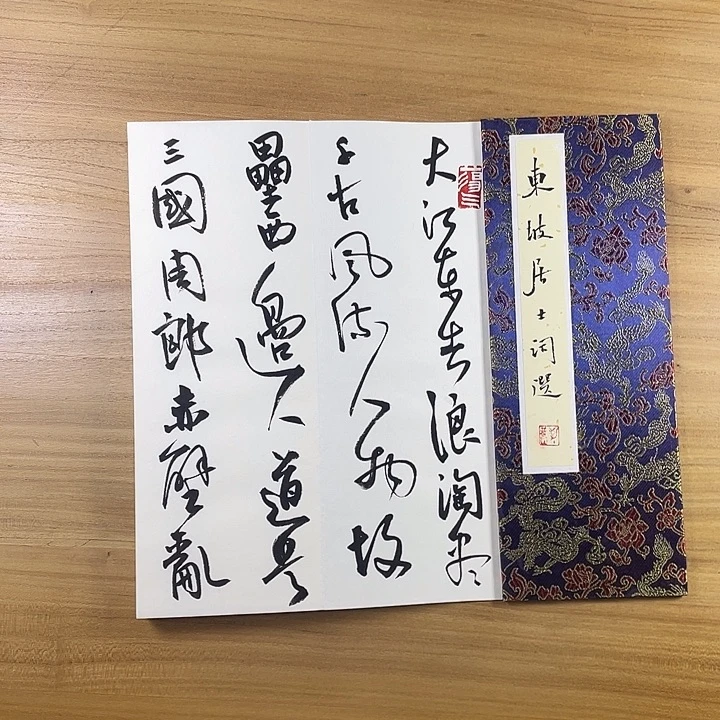 東坡居士词選
大江东去浪淘尽
千古風流人物故
壘西邊人道是
三國周郎赤壁亂